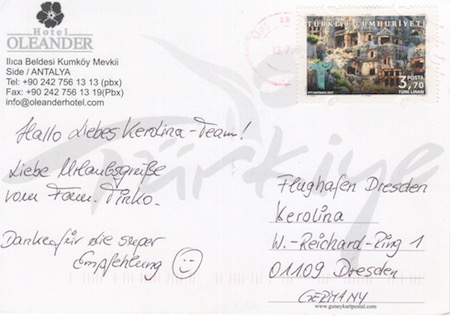 Hotel
OLEANDER
Ilıca Beldesi Kumköy Mevkii
Side / ANTALYA
Tel: +90 242 756 13 13 (pbx)
Fax: +90 242 756 13 19(Pbx)
info@oleanderhotel.com
TÜRKİYE CUMHURİYETİ
3,70
POSTA
TÜRK LİRASI
Türkiye
Hallo liebes Kerolina-Team!
Liebe Urlaubsgrüße
vom Fam.
Danke für die super
Empfehlung
Flughafen Dresden
Kerolina
W.-Reichard-Ring 1
01109 Dresden
GERMANY
www.guneykartpostal.com